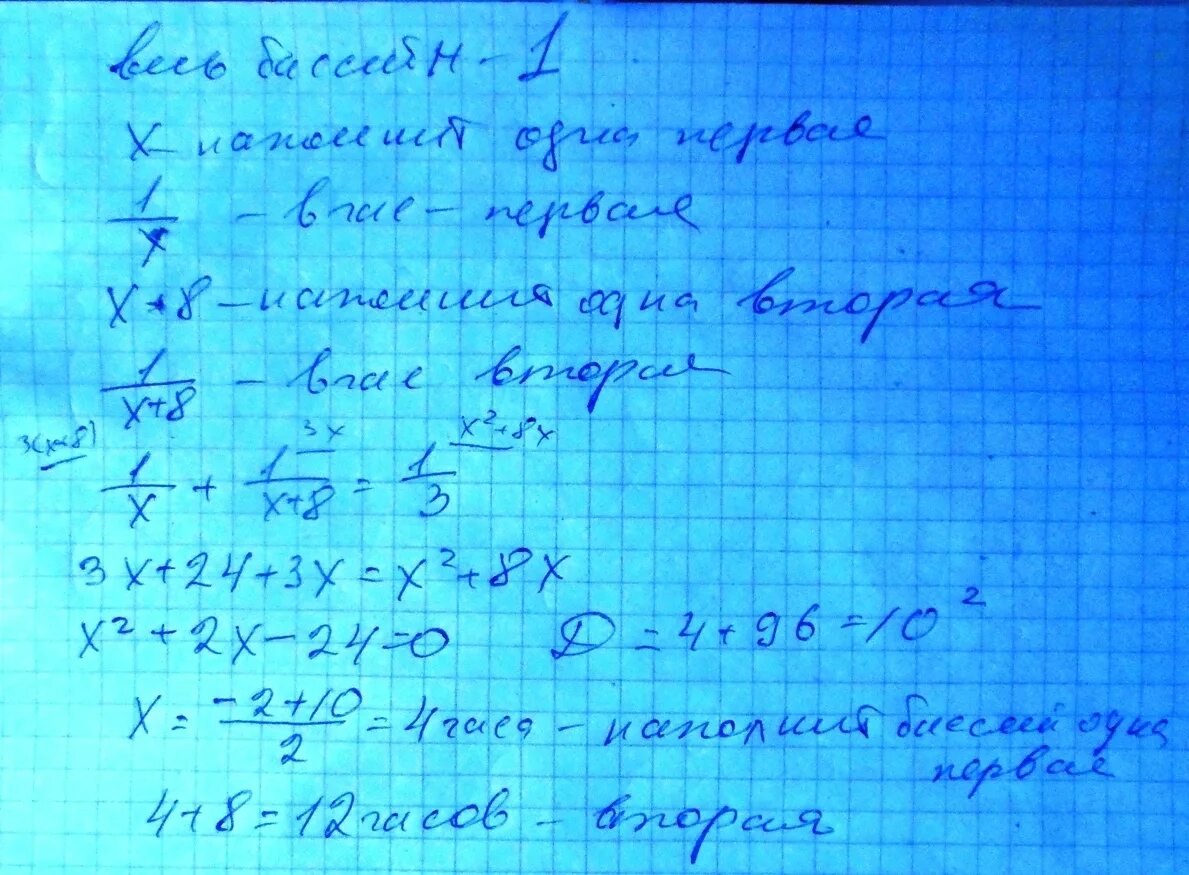 весь бассейн - 1
x наполнит одна первая
1/x - в час - первая
x+8 - наполнит одна вторая
1/(x+8) - в час вторая
3(x+8) 3x x²+8x
1/x + 1/(x+8) = 1/3
3x+24+3x=x²+8x
x²+2x-24=0 D=4+96=10²
x = (-2+10)/2 = 4 часа - наполнит бассейн одна
первая
4+8=12 часов - вторая